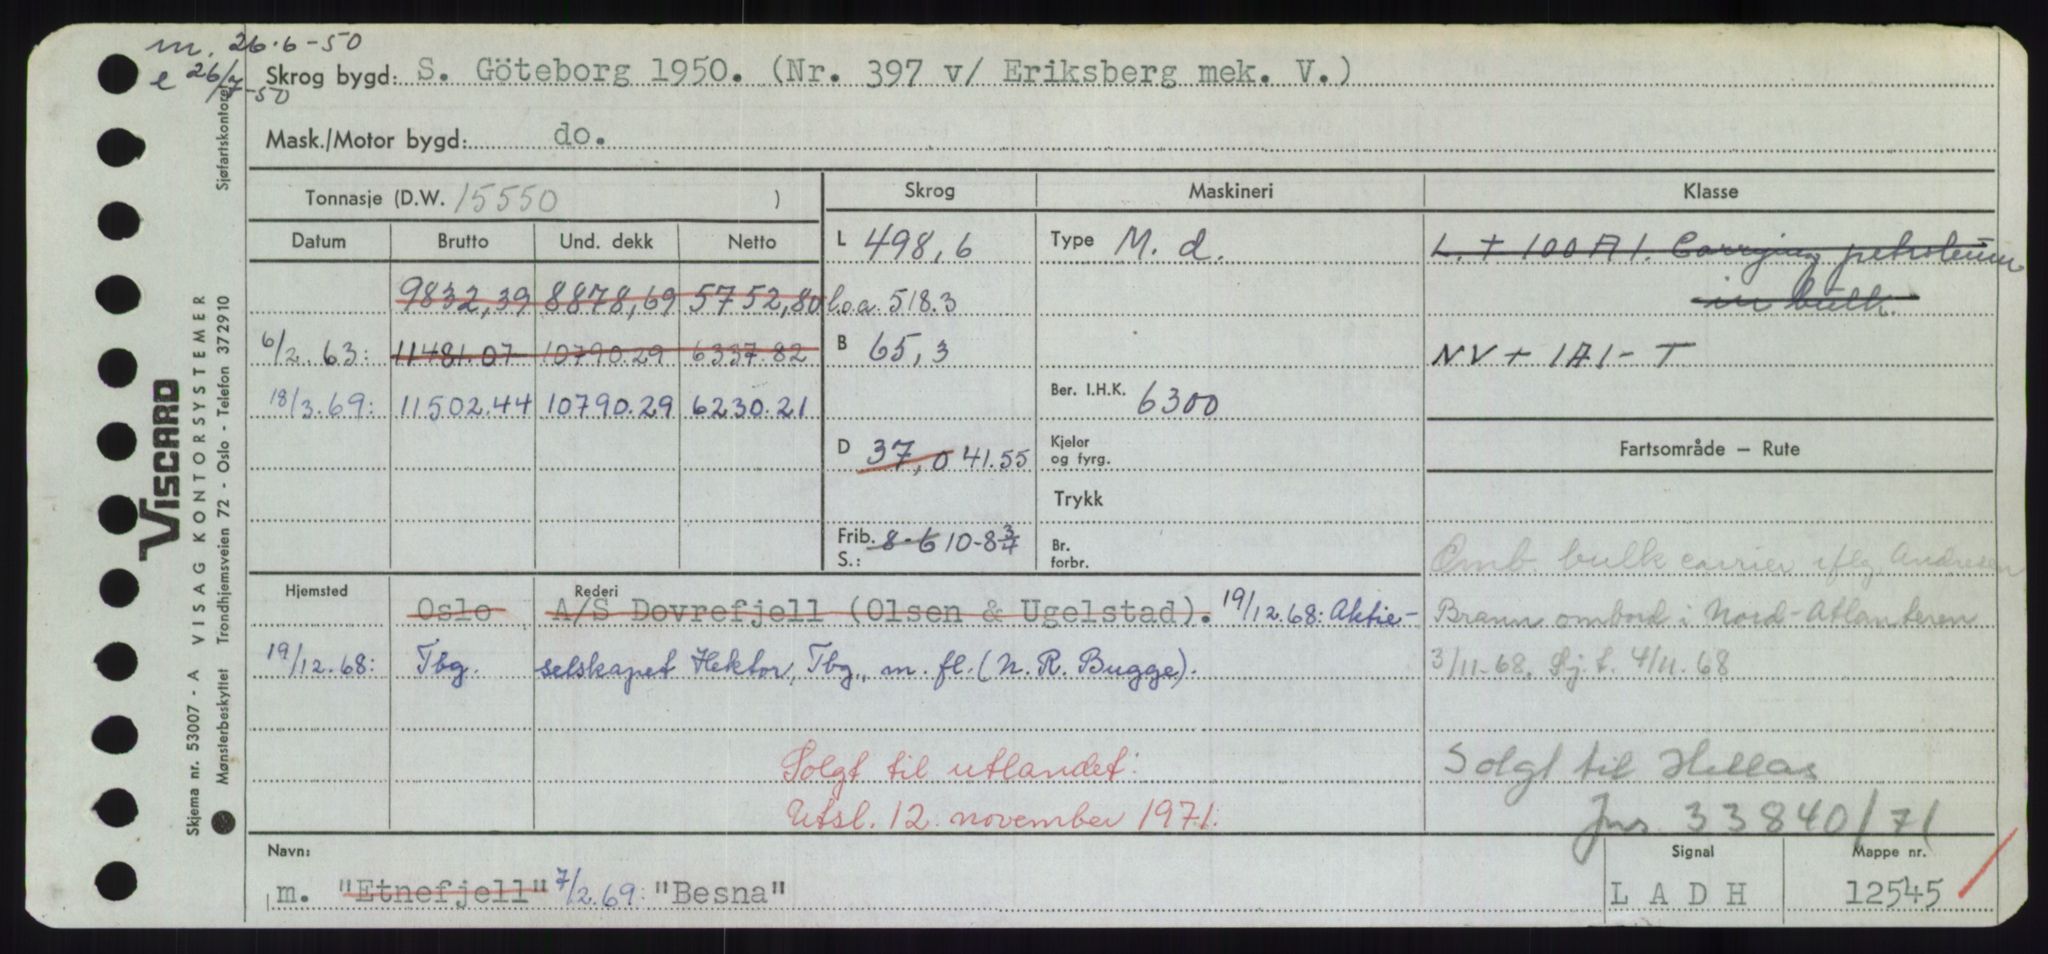 m. 26.6-50
e 26/7-50
Skrog bygd: S. Göteborg 1950. (Nr. 397 v/ Eriksberg mek. V.)
Mask./Motor bygd: do.
Tonnasje (D.W. 15550 )
Skrog
Maskineri
Klasse
Datum Brutto Und. dekk Netto
9832,39 8878,69 5752,80
6/2.63: 11481.07 10790.29 6337.82
18/3.69: 11502.44 10790.29 6230.21
L 498,6
l.o.a. 518.3
B 65,3
D 37,0 41.55
Frib. S.: 8-6 10-8 3/4
Type M. d.
Ber. I.H.K. 6300
Kjeler og fyrg.
Trykk
Br. forbr.
L. + 100 A 1. Carrying petroleum
in bulk.
NV + 1A1 - T
Fartsområde – Rute
Omb. bulk carrier iflg. Andresen
Brann ombord i Nord-Atlanteren
3/11-68. Sj.t. 4/11.68
Solgt til Hellas
Jnr. 33840/71
Hjemsted
Rederi
Oslo A/S Dovrefjell (Olsen & Ugelstad). 19/12.68: Aktie-
19/12.68: Tbg. selskapet Hektor, Tbg., m. fl. (N. R. Bugge).
Solgt til utlandet:
Utsl. 12. november 1971.
Navn:
m. "Etnefjell" 7/2.69: "Besna"
Signal
L A D H
Mappe nr.
12545
VISCARD
Skjema nr. 53007 - A VISAG KONTORSYSTEMER
Mønsterbeskyttet Trondhjemsveien 72 - Oslo - Telefon 372910
Sjøfartskontoret